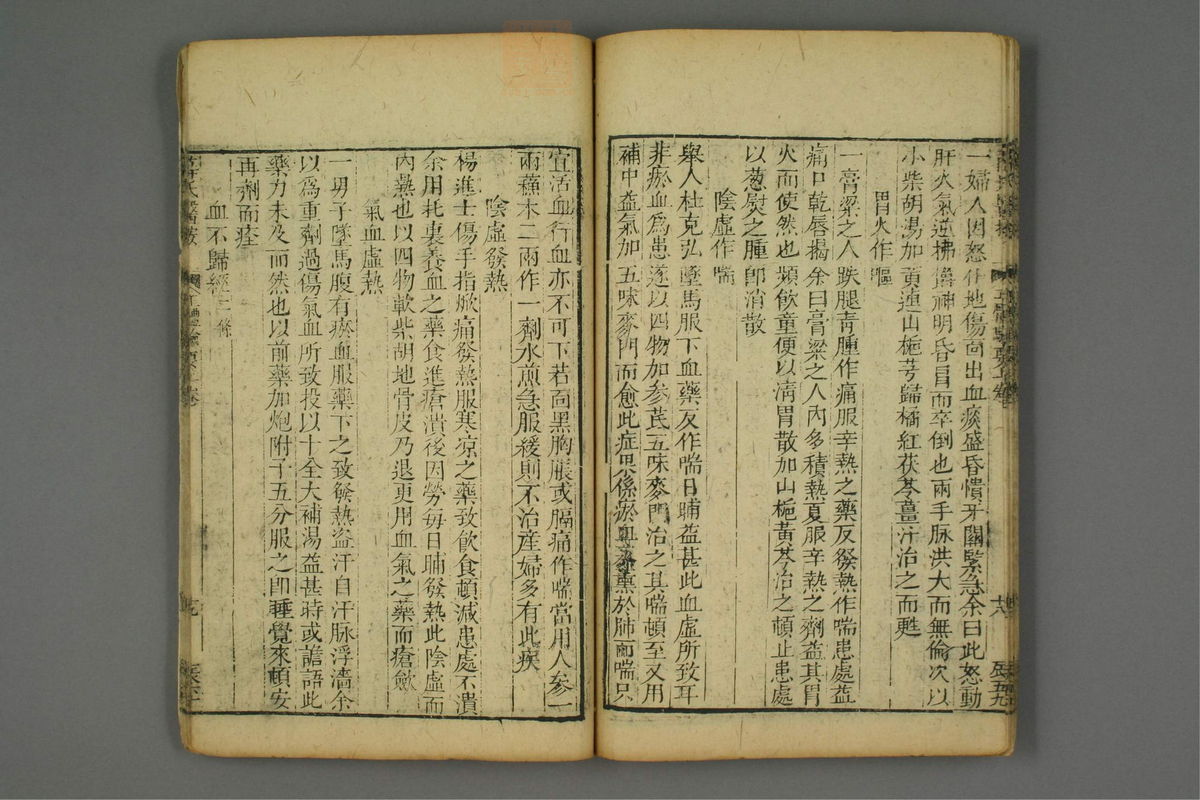 一婦人因怒仆地傷面出血痰盛昏憒牙關緊急余曰此怒動
肝火氣逆拂鬱神明昏冒而卒倒也兩手脉洪大而無倫次以
小柴胡湯加黃連山梔芎歸橘紅茯苓薑汁治之而甦
胃火作嘔
一膏粱之人跌腿青腫作痛服辛熱之藥反發熱作喘患處益
痛口乾唇揭余曰膏粱之人內多積熱夏服辛熱之劑益其胃
火而使然也頻飲童便以清胃散加山梔黃芩治之頓止患處
以葱熨之腫卽消散
陰虛作喘
舉人杜克弘墜馬服下血藥反作喘日晡益甚此血虛所致耳
非瘀血爲患遂以四物加參芪五味麥門治之其喘頓至又用
補中益氣加五味麥門而愈此症果係瘀血薰於肺而喘只
宜活血行血亦不可下若面黑胸脹或膈痛作喘當用人參一
兩蘇木二兩作一劑水煎急服緩則不治産婦多有此疾
陰虛發熱
楊進士傷手指焮痛發熱服寒凉之藥致飲食頓減患處不潰
余用托裏養血之藥食進瘡潰後因勞每日晡發熱此陰虛而
內熱也以四物軟柴胡地骨皮乃退更用血氣之藥而瘡斂
氣血虛熱
一男子墜馬腹有瘀血服藥下之致發熱盜汗自汗脉浮濇余
以爲重劑過傷氣血所致投以十全大補湯益甚時或譫語此
藥力未及而然也以前藥加炮附子五分服之卽睡覺來頓安
再劑而痊
血不歸經二條